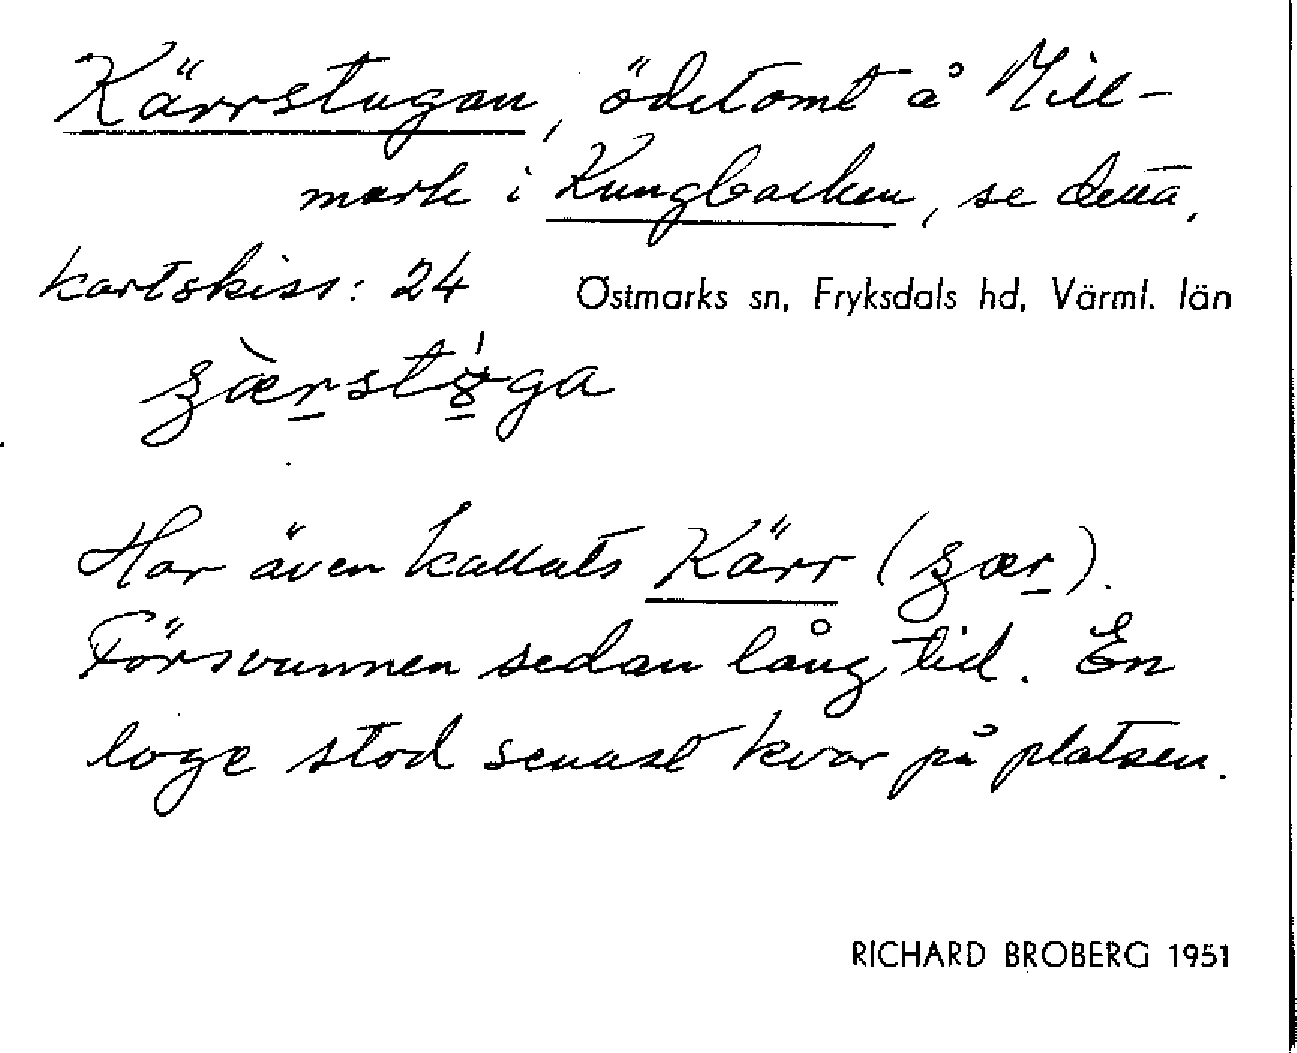 Kärrstugan, ödetomt å Mill-
mark i Kungbacken, se detta,
kartskiss: 24 Östmarks sn, Fryksdals hd, Värml. län
Har även kallats Kärr (
Försvunnen sedan lång tid. En
loge stod senast kvar på platsen.
RICHARD BROBERG 1951